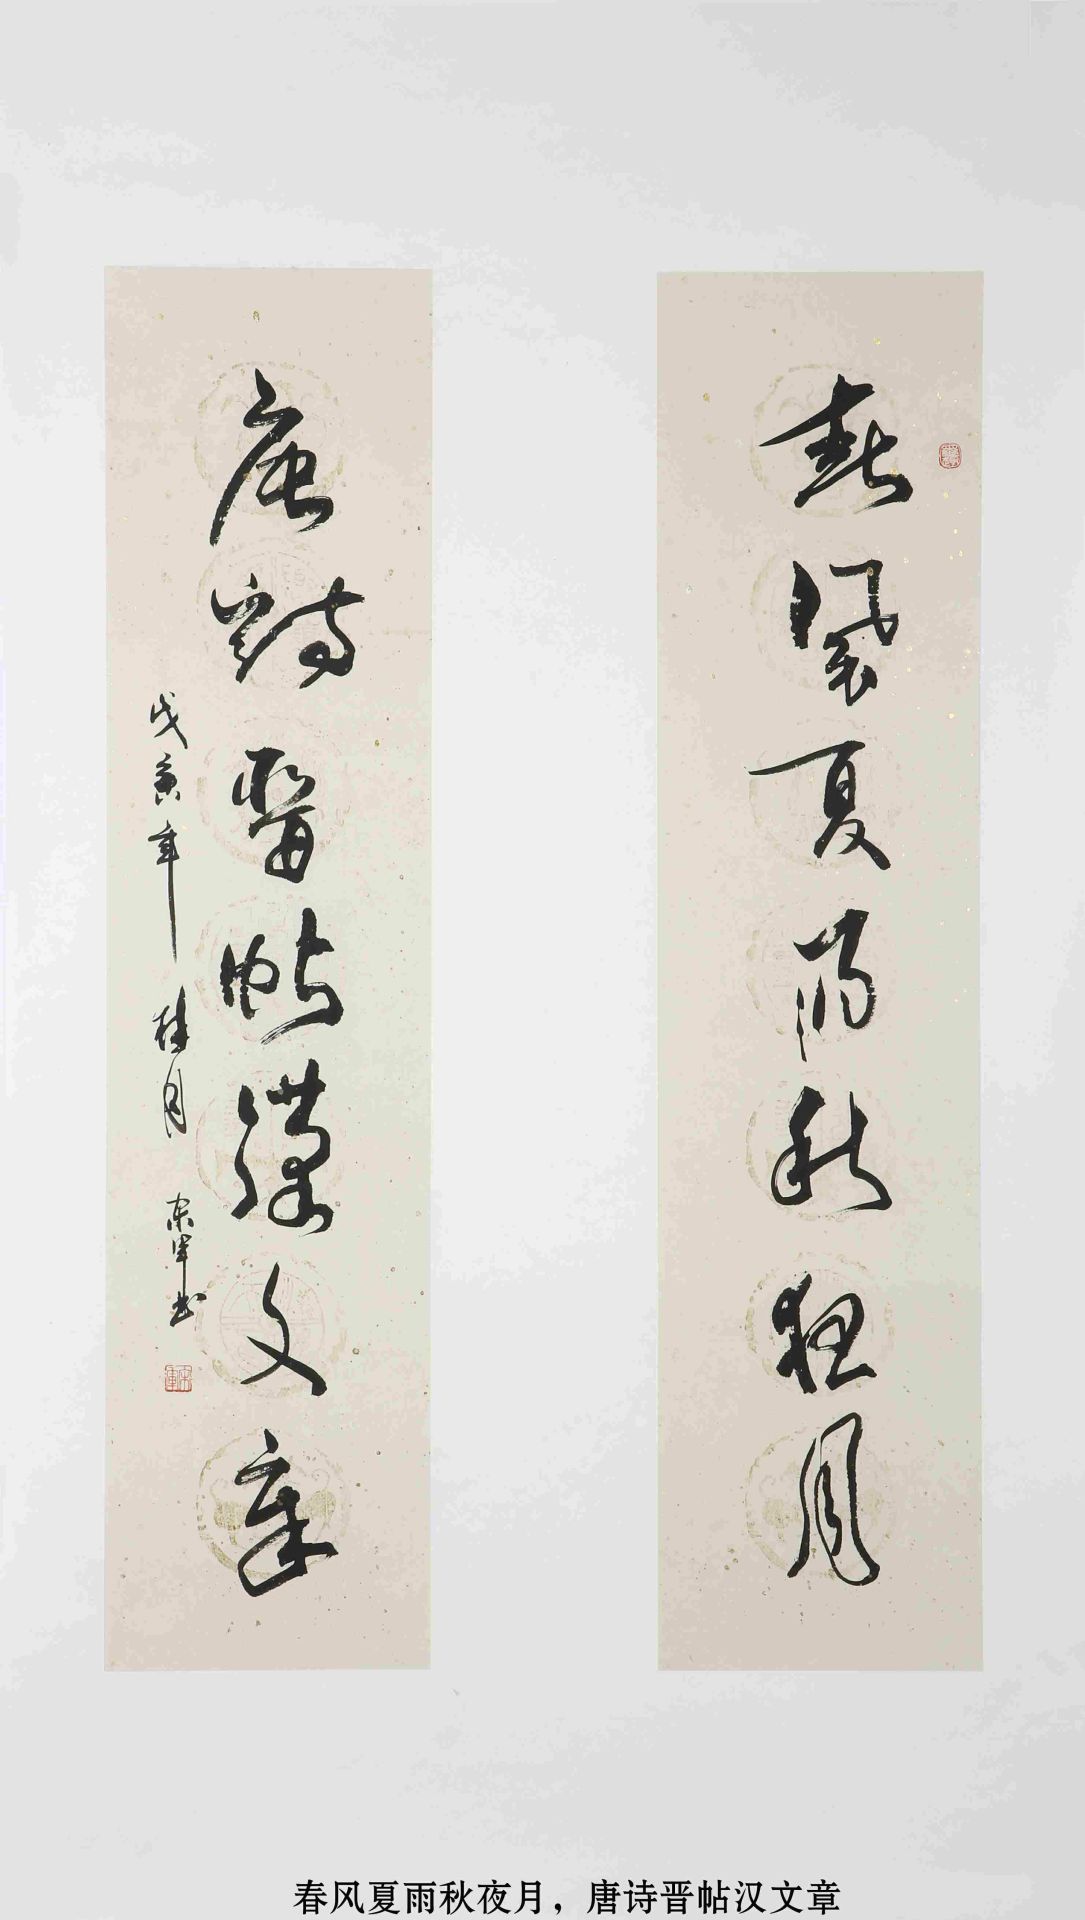 春風夏雨秋夜月
唐詩晉帖漢文章
戊寅年 桂月 宋军书
宋軍
春风夏雨秋夜月，唐诗晋帖汉文章